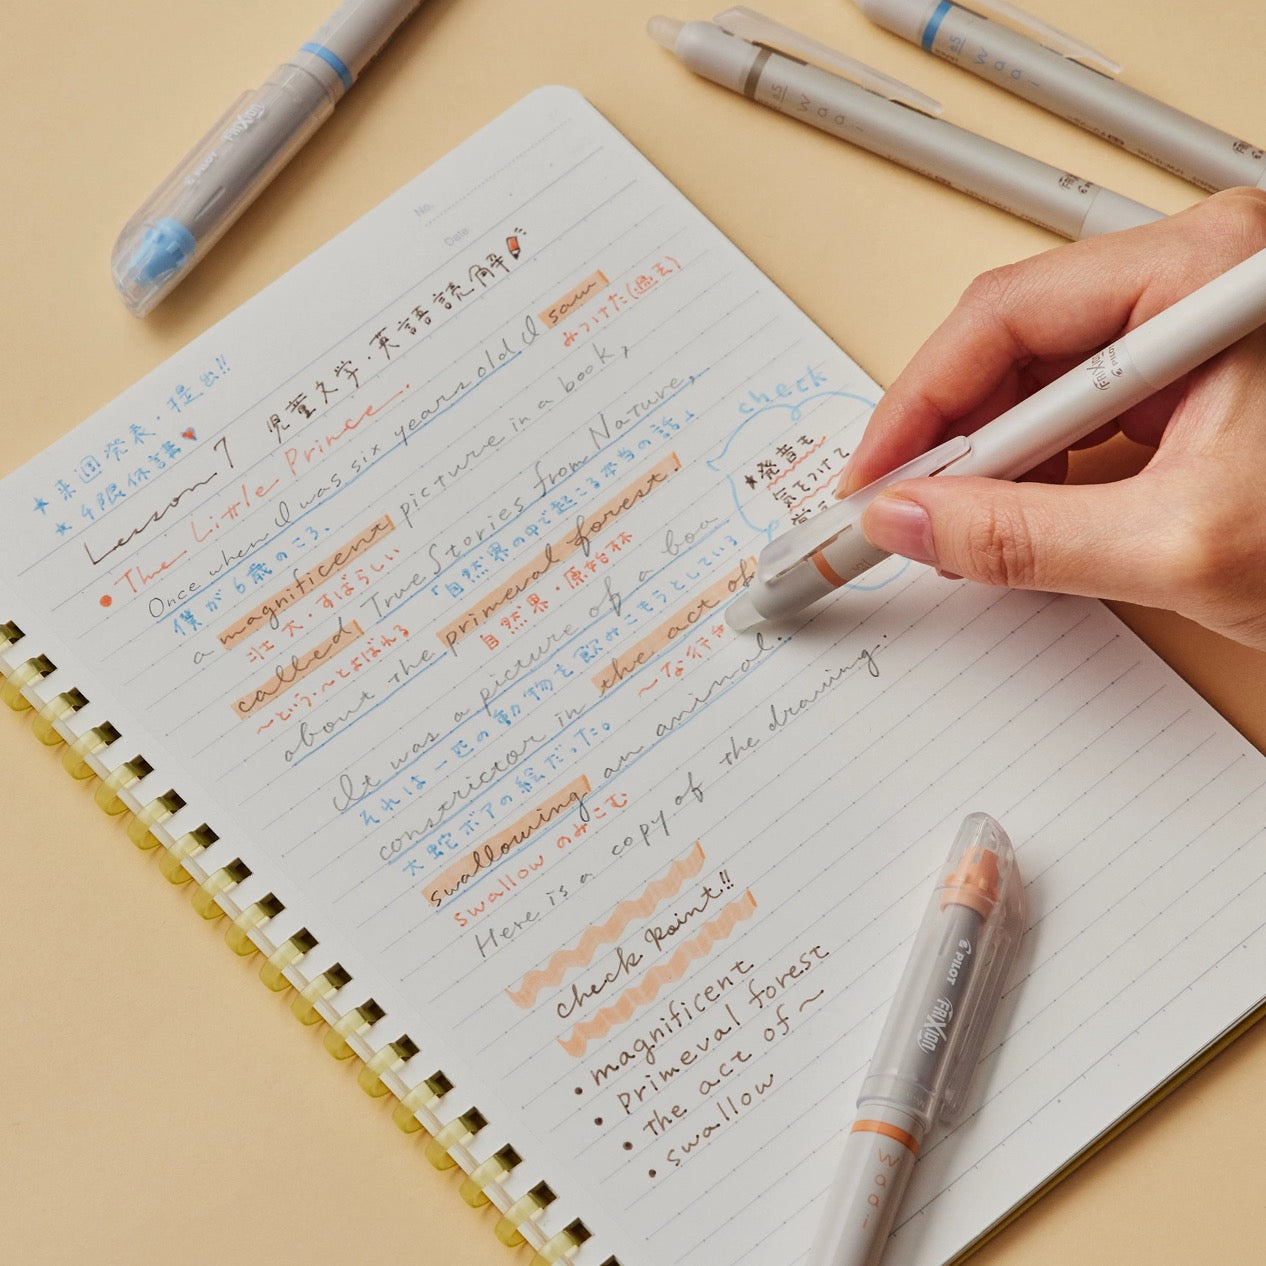 No.
Date
★来週発表・提出!!
★4限保講
Lesson 7 児童文学・英語読解
• The Little Prince.
Once when I was six years old I saw
僕が6歳のころ、
みつけた(過去)
a magnificent picture in a book,
壮大・すばらしい
called True Stories from Nature,
〜という・〜とよばれる
「自然界の中で起こる本当の話」
about the primeval forest.
自然界・原始林
It was a picture of a boa
それは一匹の動物を飲みこもうとしている
constrictor in the act of
〜な行
大蛇ボアの絵だった。
swallowing an animal.
swallow のみこむ
Here is a copy of the drawing.
check
★発音も
気をつけて
check point!!
• magnificent
• Primeval forest
• the act of〜
• swallow
PILOT FRIXION
Waai
Waai
FRIXION PILOT
PILOT FRIXION
Waai